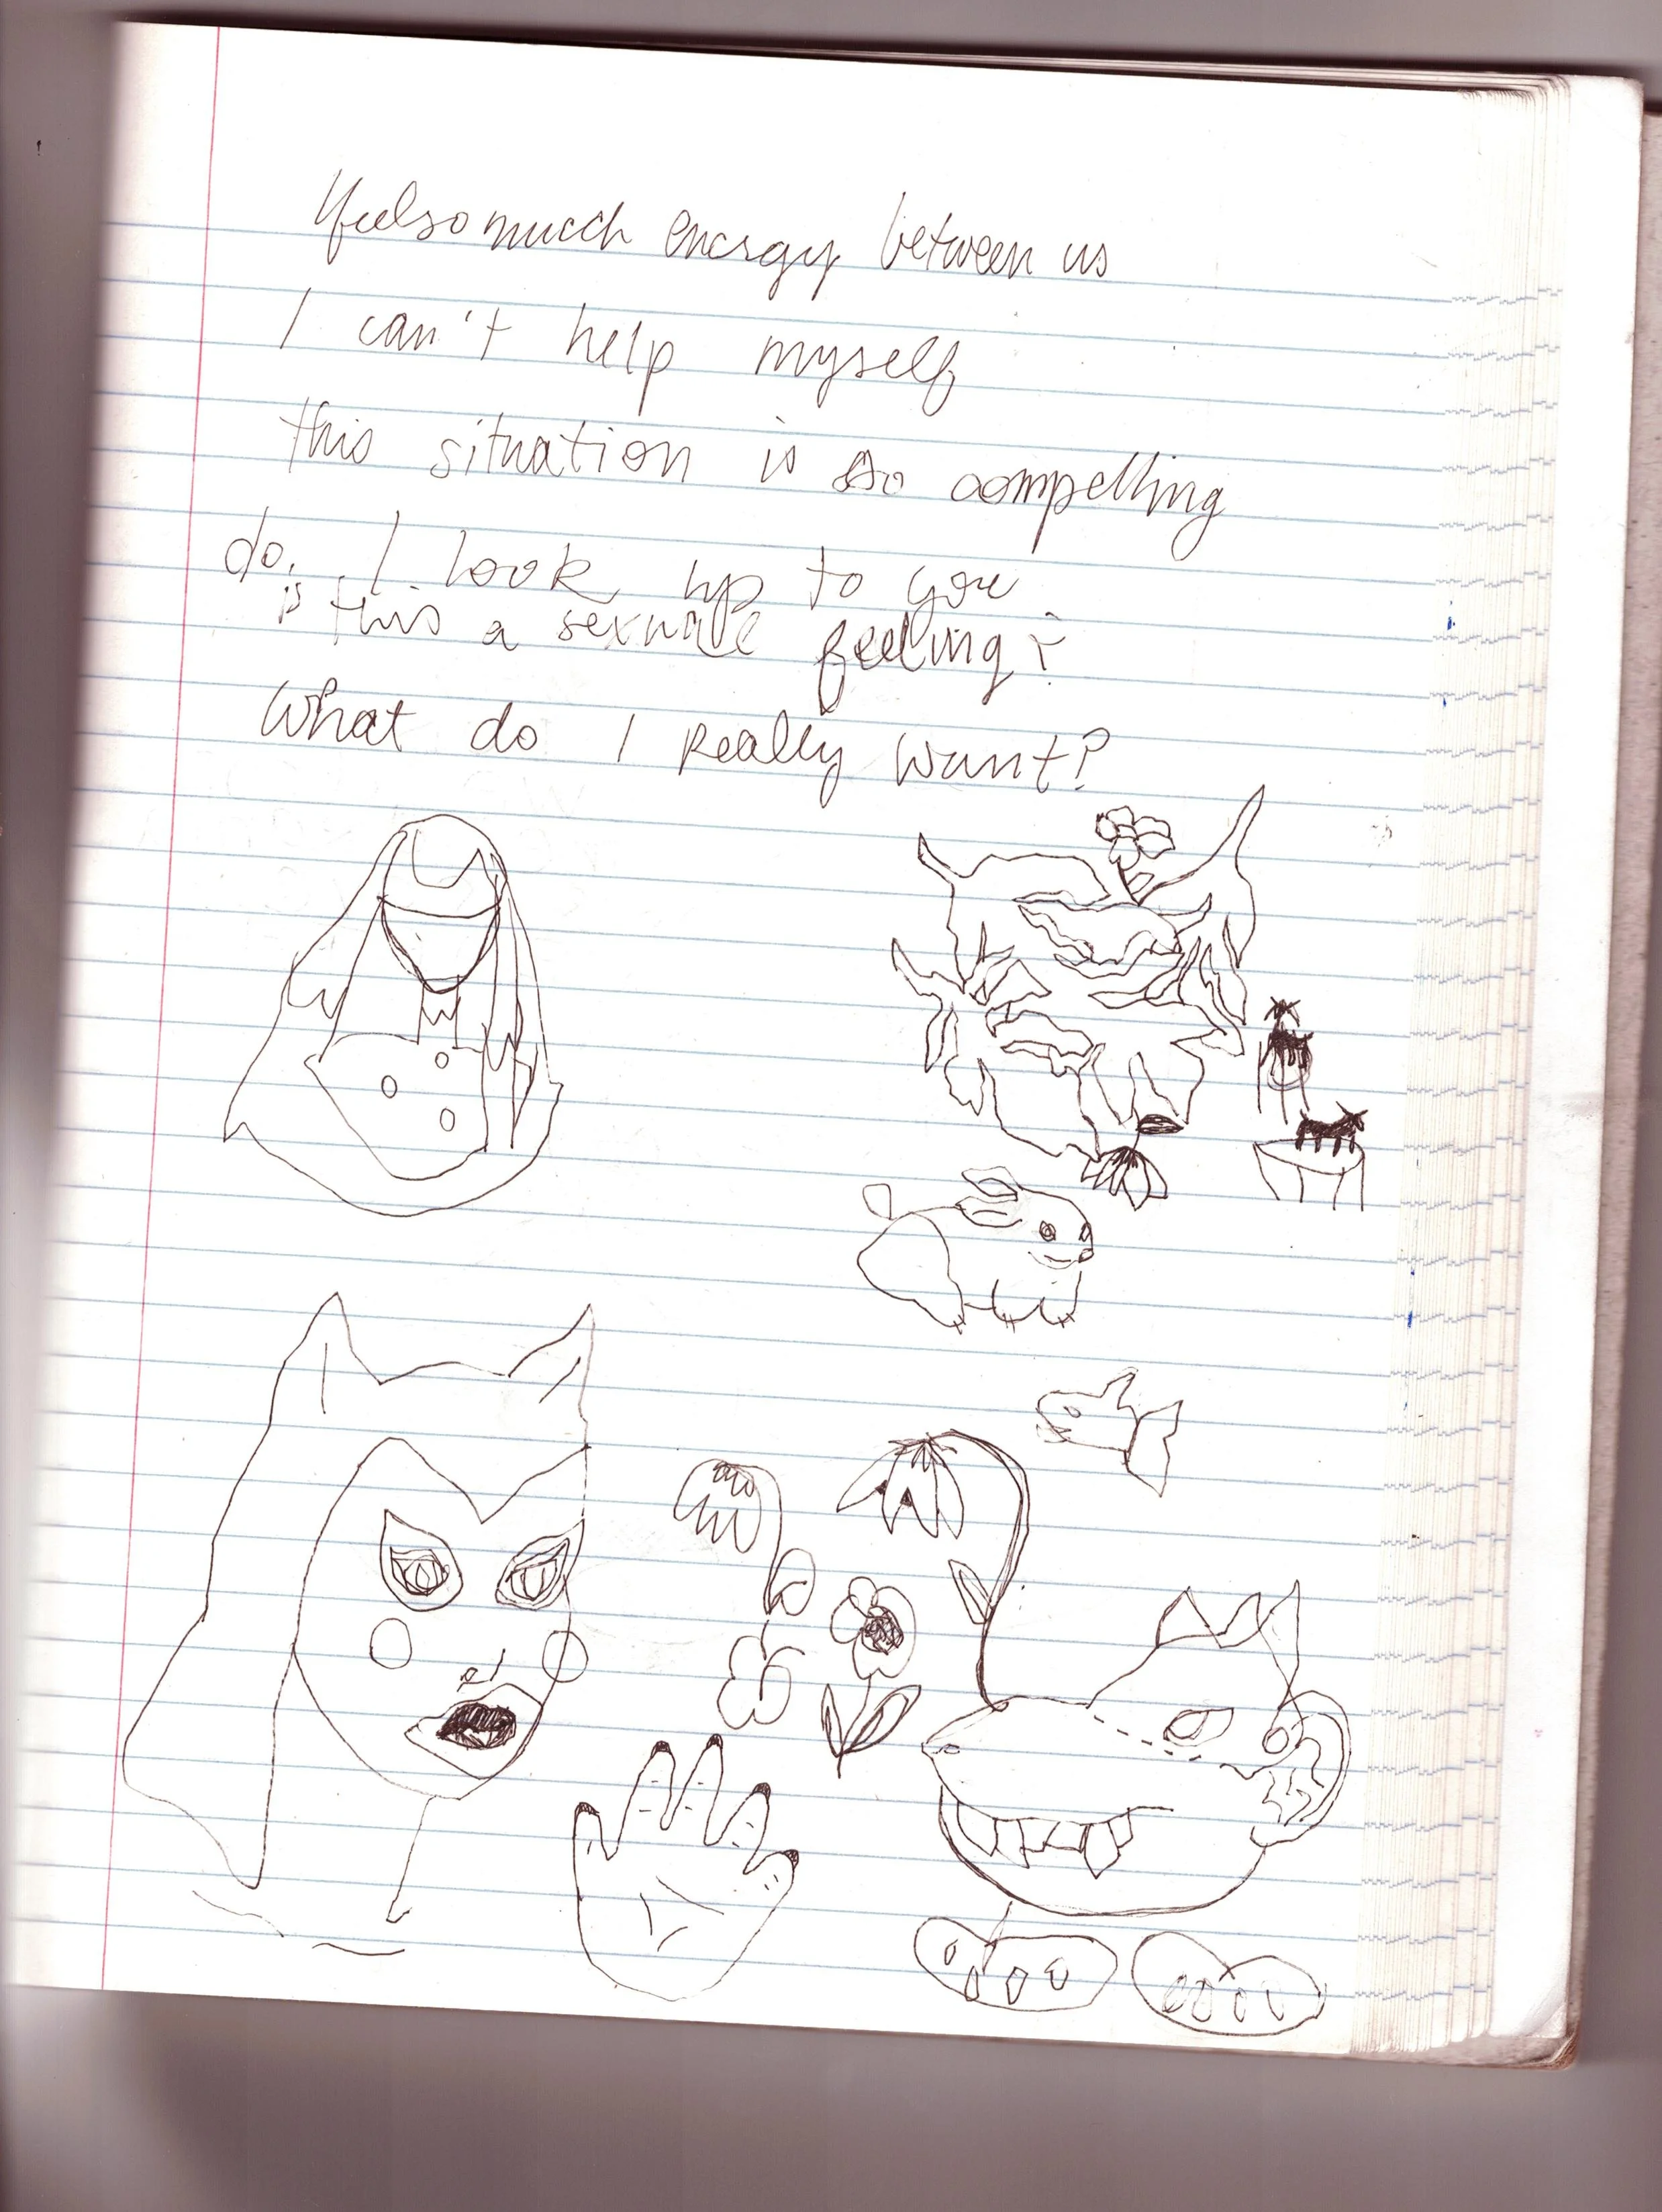 I feel so much energy between us
I can't help myself
this situation is so compelling
do I look up to you
is this a sexual feeling?
What do I really want?